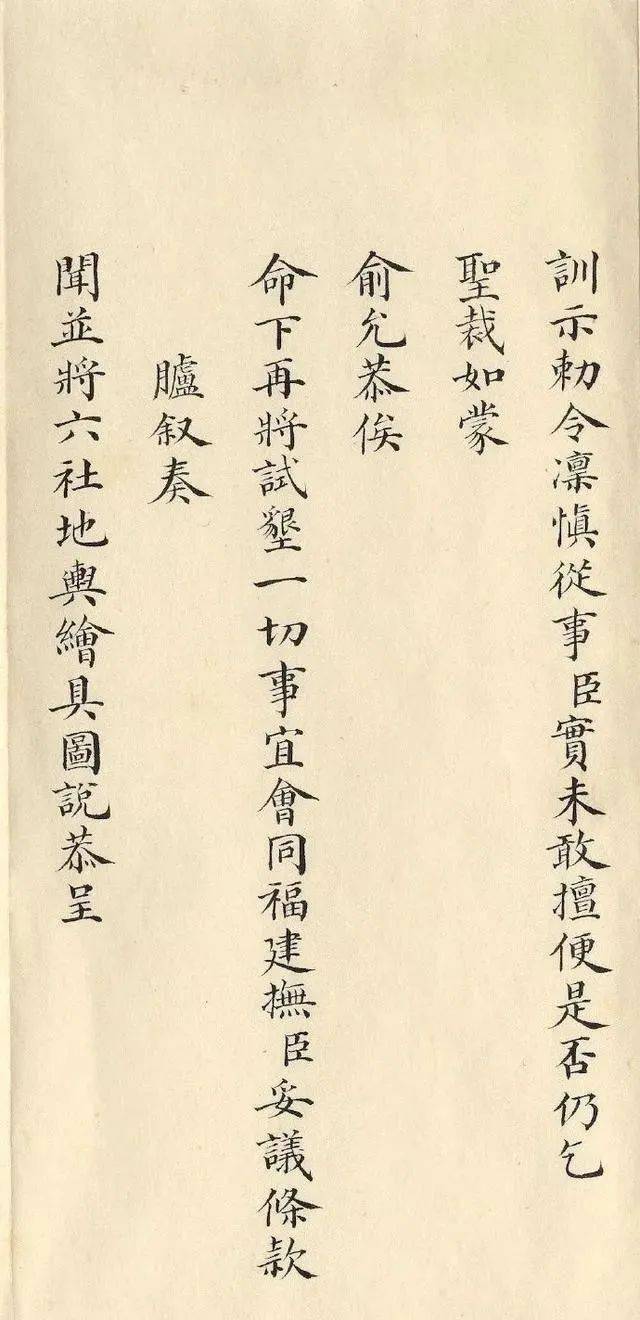 訓示勅令凛慎從事臣實未敢擅便是否仍乞
聖裁如蒙
俞允恭俟
命下再將試墾一切事宜會同福建撫臣妥議條款
臚叙奏
聞並將六社地輿繪具圖說恭呈